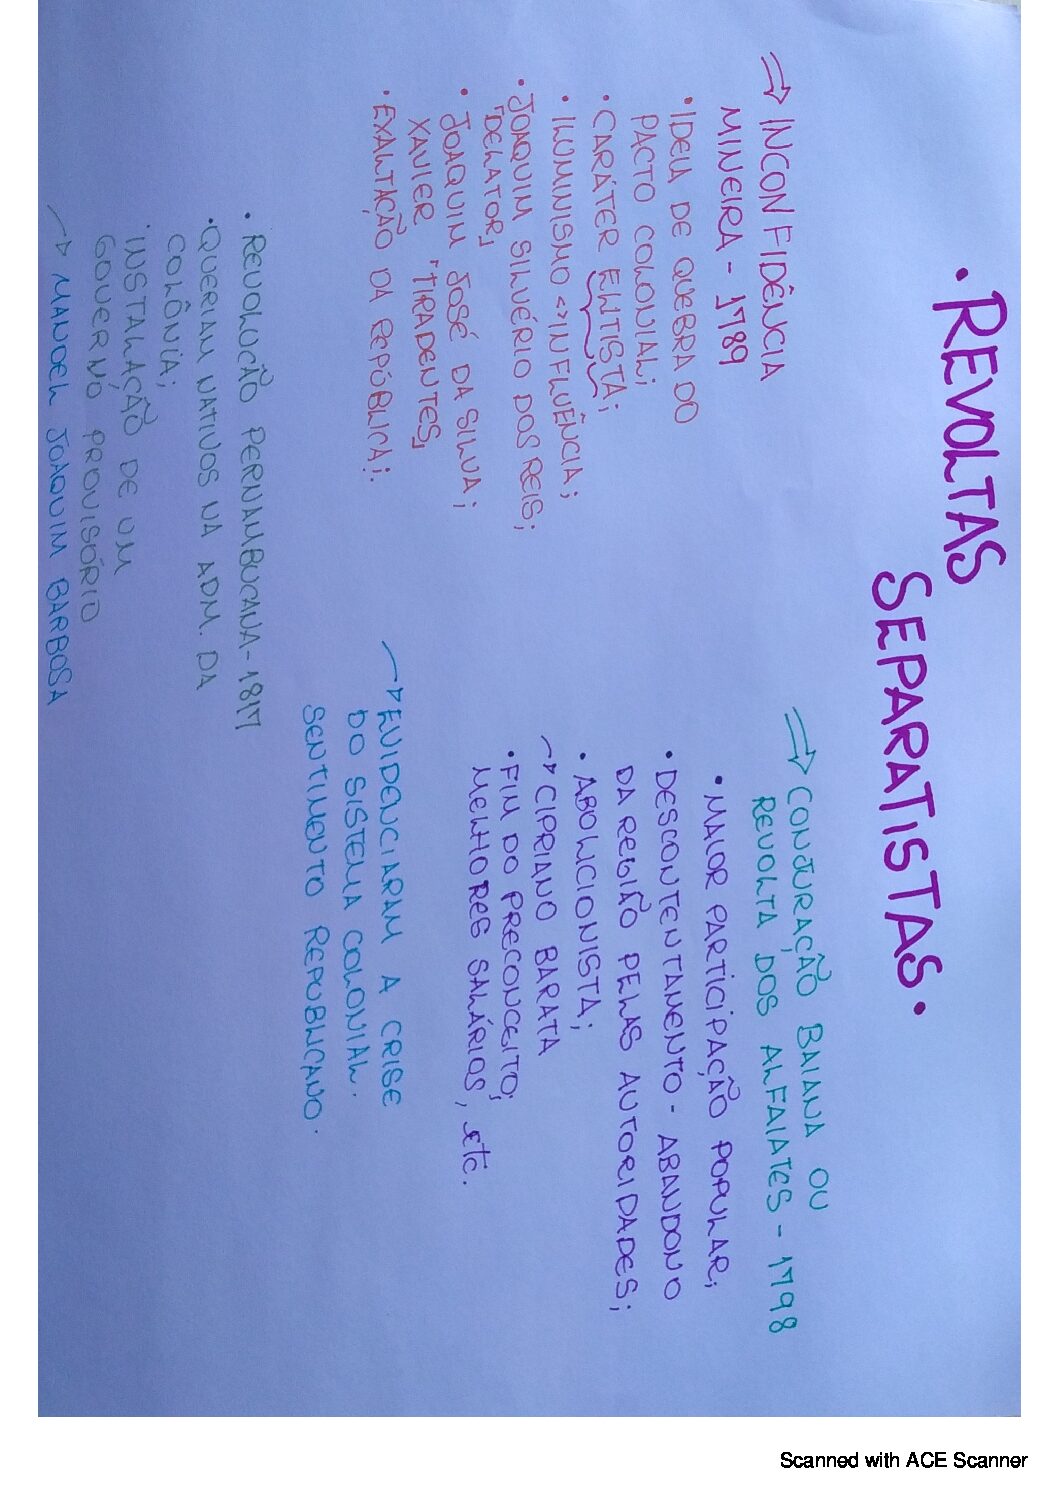 • REVOLTAS
SEPARATISTAS •
⇒ INCONFIDÊNCIA
MINEIRA - 1789
• IDEIA DE QUEBRA DO
PACTO COLONIAL;
• CARÁTER ELITISTA;
• ILUMINISMO <> INFLUÊNCIA;
• JOAQUIM SILVÉRIO DOS REIS;
"DELATOR"
• JOAQUIM JOSÉ DA SILVA;
XAVIER "TIRADENTES"
• EXALTAÇÃO DA REPÚBLICA;.
⇒ CONJURAÇÃO BAIANA OU
REVOLTA DOS ALFAIATES - 1798
• MAIOR PARTICIPAÇÃO POPULAR;
• DESCONTENTAMENTO - ABANDONO
DA REGIÃO PELAS AUTORIDADES;
• ABOLICIONISTA;
→ CIPRIANO BARATA
• FIM DO PRECONCEITO;
MELHORES SALÁRIOS, etc.
→ EVIDENCIARAM A CRISE
DO SISTEMA COLONIAL.
SENTIMENTO REPUBLICANO.
• REVOLUÇÃO PERNAMBUCANA - 1817
• QUERIAM NATIVOS NA ADM. DA
COLÔNIA;
• INSTALAÇÃO DE UM
GOVERNO PROVISÓRIO
→ MANOEL JOAQUIM BARBOSA
Scanned with ACE Scanner